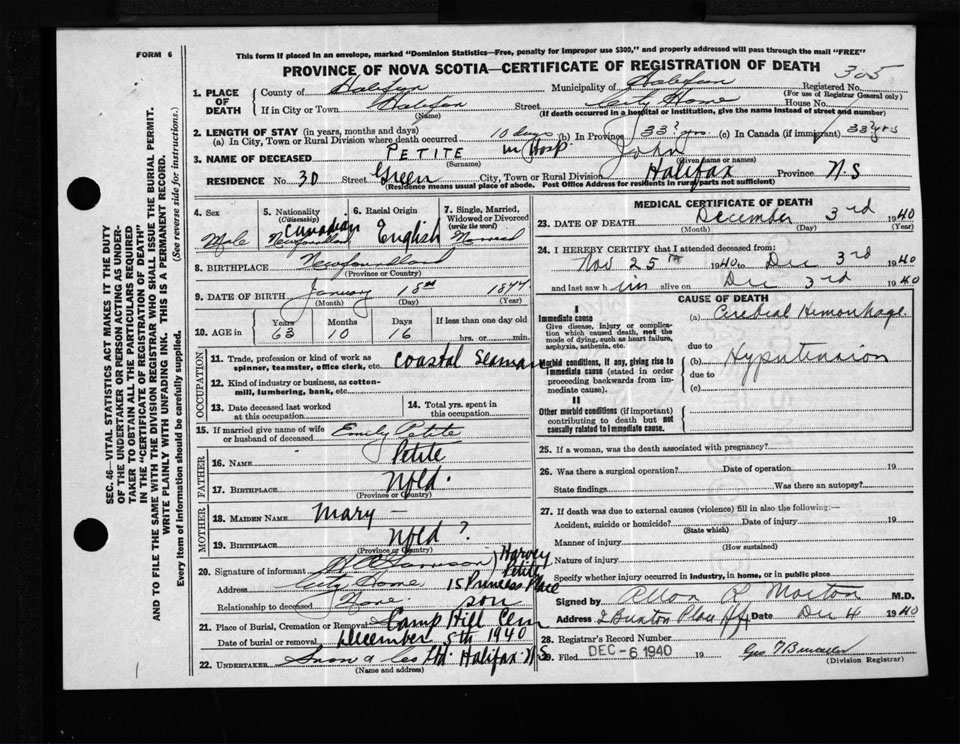 FORM 6
This form if placed in an envelope, marked "Dominion Statistics—Free, penalty for improper use $300," and properly addressed will pass through the mail "FREE"
PROVINCE OF NOVA SCOTIA—CERTIFICATE OF REGISTRATION OF DEATH
305
1. PLACE OF DEATH
County of Halifax Municipality of Halifax Registered No.
(For use of Registrar General only)
If in City or Town Halifax Street City Home House No.
(Name) (If death occurred in a hospital or institution, give the name instead of street and number)
2. LENGTH OF STAY (in years, months and days)
(a) In City, Town or Rural Division where death occurred 10 days in Hosp. (b) In Province 33? yrs. (c) In Canada (if immigrant) 33? yrs
3. NAME OF DECEASED PETITE John
(Surname) (Given name or names)
RESIDENCE No. 30 Street Green City, Town or Rural Division Halifax Province N.S
(Residence means usual place of abode. Post Office Address for residents in rural parts not sufficient)
4. Sex Male
5. Nationality (Citizenship) Canadian Newfoundland
6. Racial Origin English
7. Single, Married, Widowed or Divorced (write the word) Married
8. BIRTHPLACE Newfoundland
(Province or Country)
9. DATE OF BIRTH January 18th 1877
(Month) (Day) (Year)
10. AGE in Years 63 Months 10 Days 16 If less than one day old hrs. or min.
OCCUPATION
11. Trade, profession or kind of work as spinner, teamster, office clerk, etc. Coastal Seaman
12. Kind of industry or business, as cotton-mill, lumbering, bank, etc.
13. Date deceased last worked at this occupation
14. Total yrs. spent in this occupation
15. If married give name of wife or husband of deceased Emily Petite
FATHER
16. NAME Petite
17. BIRTHPLACE Nfld.
(Province or Country)
MOTHER
18. MAIDEN NAME Mary —
19. BIRTHPLACE Nfld ?
(Province or Country)
20. Signature of informant Harvey Petite
Address City Home 15 Princess Place
Relationship to deceased None. son
21. Place of Burial, Cremation or Removal Camp Hill Cem
Date of burial or removal December 5th 1940
22. UNDERTAKER Snow & Co Ltd. Halifax N.S
(Name and address)
MEDICAL CERTIFICATE OF DEATH
23. DATE OF DEATH December 3rd 1940
(Month) (Day) (Year)
24. I HEREBY CERTIFY that I attended deceased from:
Nov 25th 1940 to Dec 3rd 1940
and last saw him alive on Dec 3rd 1940
CAUSE OF DEATH
I
Immediate cause
Give disease, injury or complication which caused death, not the mode of dying, such as heart failure, asphyxia, asthenia, etc.
(a) Cerebral Hemorrhage
due to
Morbid conditions, if any, giving rise to immediate cause (stated in order proceeding backwards from immediate cause).
(b) Hypertension
due to
(c)
II
Other morbid conditions (if important) contributing to death but not causally related to immediate cause.
25. If a woman, was the death associated with pregnancy?
26. Was there a surgical operation? Date of operation 19
State findings Was there an autopsy?
27. If death was due to external causes (violence) fill in also the following:—
Accident, suicide or homicide? Date of injury 19
(State which)
Manner of injury
(How sustained)
Nature of injury
Specify whether injury occurred in industry, in home, or in public place
Signed by R Morton M.D.
Address Date Dec 4 1940
28. Registrar's Record Number
29. Filed DEC -6 1940 19
(Division Registrar)
SEC. 46—VITAL STATISTICS ACT MAKES IT THE DUTY
OF THE UNDERTAKER OR PERSON ACTING AS UNDERTAKER TO OBTAIN ALL THE PARTICULARS REQUIRED
IN THE "CERTIFICATE OF REGISTRATION OF DEATH"
AND TO FILE THE SAME WITH THE DIVISION REGISTRAR WHO SHALL ISSUE THE BURIAL PERMIT.
WRITE PLAINLY WITH UNFADING INK. THIS IS A PERMANENT RECORD.
Every item of information should be carefully supplied. (See reverse side for instructions.)